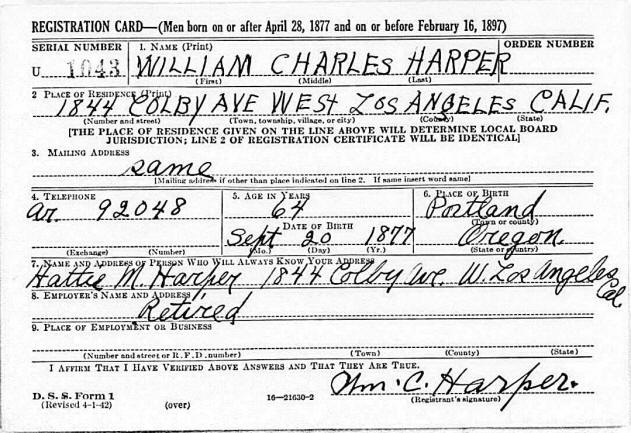 REGISTRATION CARD—(Men born on or after April 28, 1877 and on or before February 16, 1897)
SERIAL NUMBER 1. NAME (Print) ORDER NUMBER
U 1043 WILLIAM CHARLES HARPER
(First) (Middle) (Last)
2 PLACE OF RESIDENCE (Print)
1844 COLBY AVE WEST LOS ANGELES CALIF.
(Number and street) (Town, township, village, or city) (County) (State)
[THE PLACE OF RESIDENCE GIVEN ON THE LINE ABOVE WILL DETERMINE LOCAL BOARD
JURISDICTION; LINE 2 OF REGISTRATION CERTIFICATE WILL BE IDENTICAL]
3. MAILING ADDRESS
same
[Mailing address if other than place indicated on line 2. If same insert word same]
4. TELEPHONE 5. AGE IN YEARS 6. PLACE OF BIRTH
Ar. 92048 64 Portland
DATE OF BIRTH (Town or county)
Sept 20 1877 Oregon.
(Exchange) (Number) (Mo.) (Day) (Yr.) (State or country)
7. NAME AND ADDRESS OF PERSON WHO WILL ALWAYS KNOW YOUR ADDRESS
Hattie M. Harper 1844 Colby Ave. W. Los Angeles Cal.
8. EMPLOYER'S NAME AND ADDRESS
Retired
9. PLACE OF EMPLOYMENT OR BUSINESS
(Number and street or R. F. D. number) (Town) (County) (State)
I AFFIRM THAT I HAVE VERIFIED ABOVE ANSWERS AND THAT THEY ARE TRUE.
Wm. C. Harper.
D. S. S. Form 1 16—21630-2 (Registrant's signature)
(Revised 4-1-42) (over)